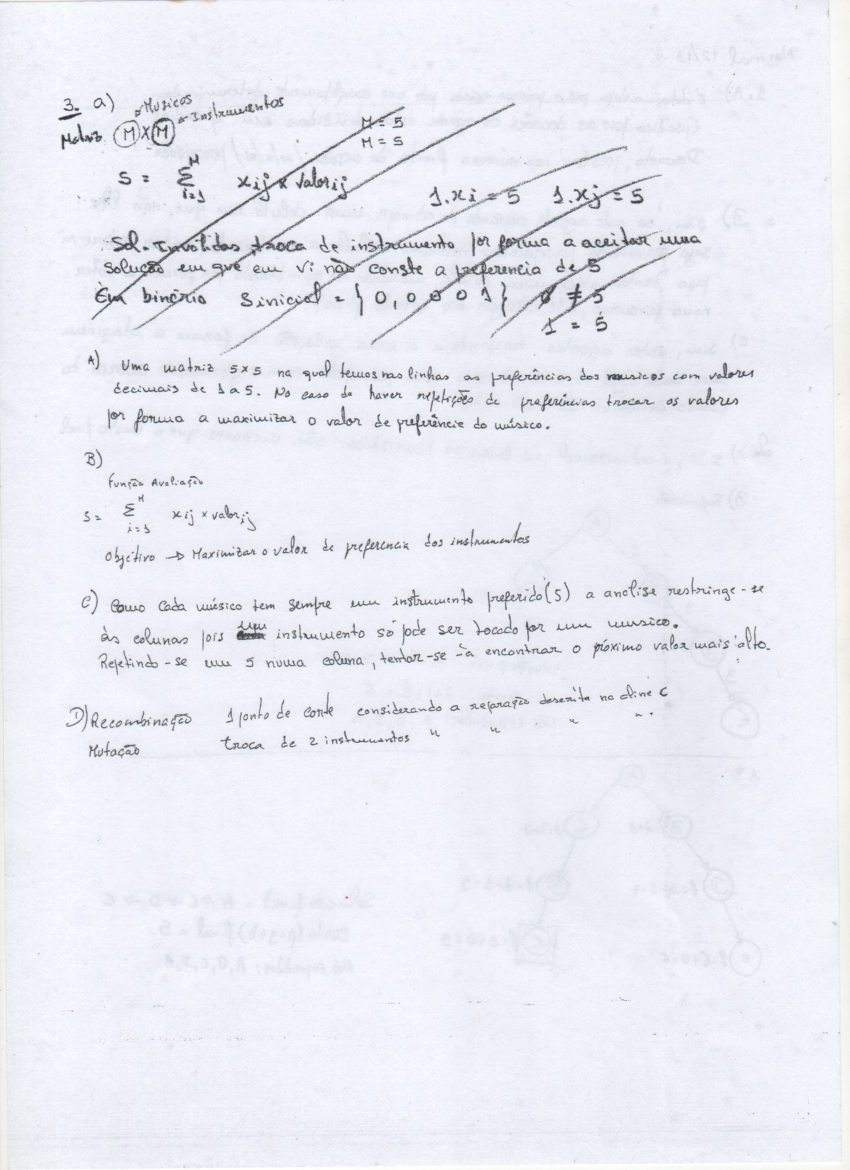 3. a) Musicos
Matriz M x M Instrumentos
M = 5
M = 5
S = Σ i=1 M xij x valorij
1.xi = 5 1.xj = 5
Sol. Inválidas, troca de instrumento por forma a aceitar uma
solução em que em Vi não conste a preferencia de 5
Em binário Sinicial = { 0, 0 0 0 1 } 0 ≠ 5
1 = 5
A) Uma matriz 5x5 na qual temos nas linhas as preferências dos musicos com valores
decimais de 1 a 5. No caso de haver repetições de preferências trocar os valores
por forma a maximizar o valor de preferência do músico.
B)
Função Avaliação
S = Σ i=1 M xij x valorij
Objetivo → Maximizar o valor de preferencia dos instrumentos
C) Como cada músico tem sempre um instrumento preferido (5) a analise restringe-se
às colunas pois um instrumento só pode ser tocado por um musico.
Repetindo-se um 5 numa coluna, tentar-se-à encontrar o próximo valor mais alto.
D) Recombinação 1 ponto de corte considerando a reparação descrita na aline C
Mutação troca de 2 instrumentos " " " " .